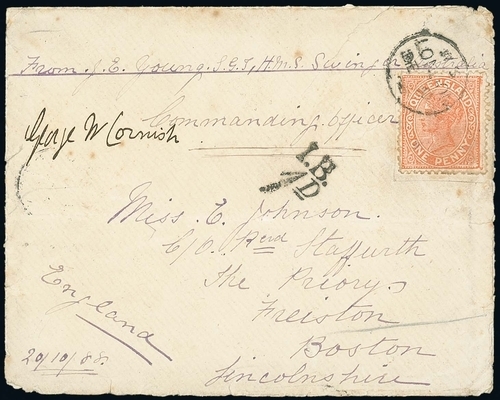 From J. E. Young. S.G.T, H.M.S. Swinger Australia
QUEENSLAND
ONE PENNY
Commanding Officer
George W Cornish
I.B.
7D
Miss. E. Johnson.
C/O. Revd Staffurth
The Priory,
Freiston
Boston
Lincolnshire
England
20/10/88.